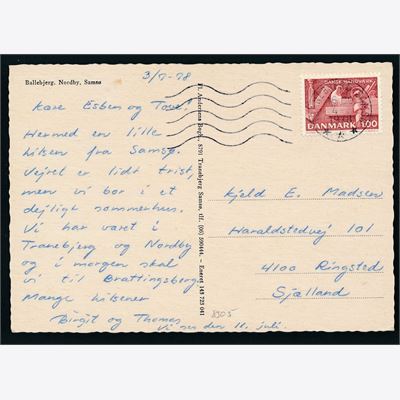 Ballebjerg. Nordby, Samsø
3/7-78
Kære Esben og Tove!
Hermed en lille
hilsen fra Samsø.
Vejret er lidt trist,
men vi bor i et
dejligt sommerhus.
Vi har været i
Tranebjerg og Nordby
og i morgen skal
vi til Brattingsborg.
Mange hilsener
Birgit og Thomas
Vi ses den 16. juli.
Fl. Andersens Bogh., 8791 Tranebjerg Samsø, tlf. (06) 590444. - Eneret 145 723 041
DANSK HÅNDVÆRK
DANMARK 100
Kjeld E. Madsen
Haraldstedvej 101
4100 Ringsted
Sjælland
8305